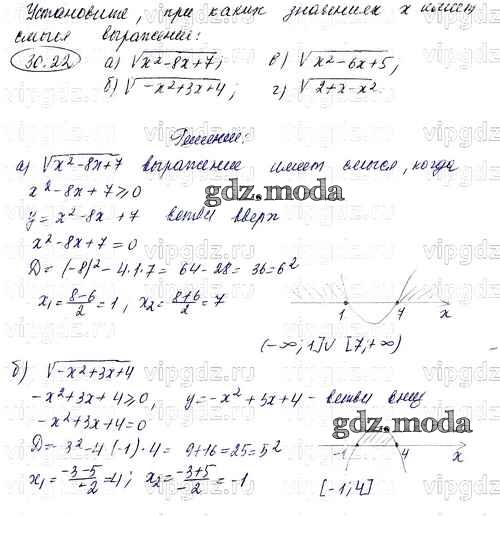 Установите, при каких значениях x имеет
смысл выражение:
30.22 а) √x²-8x+7; в) √x²-6x+5;
б) √-x²+3x+4; г) √2+x-x².
Решение:
а) √x²-8x+7 выражение имеет смысл, когда
x²-8x+7⩾0
gdz.moda
y = x²-8x+7 ветви вверх
x²-8x+7=0
D = (-8)²-4·1·7 = 64-28 = 36=6²
x₁ = 8-6/2 = 1, x₂ = 8+6/2 = 7
1 7 x
(-∞; 1]∪[7;+∞)
б) √-x²+3x+4
-x²+3x+4⩾0, y = -x²+3x+4 - ветви вниз
-x²+3x+4=0
gdz.moda
D = 3²-4·(-1)·4 = 9+16=25=5²
-1 4 x
x₁ = -3-5/-2 = 4; x₂ = -3+5/-2 = -1
[-1;4]
vipgdz.ru